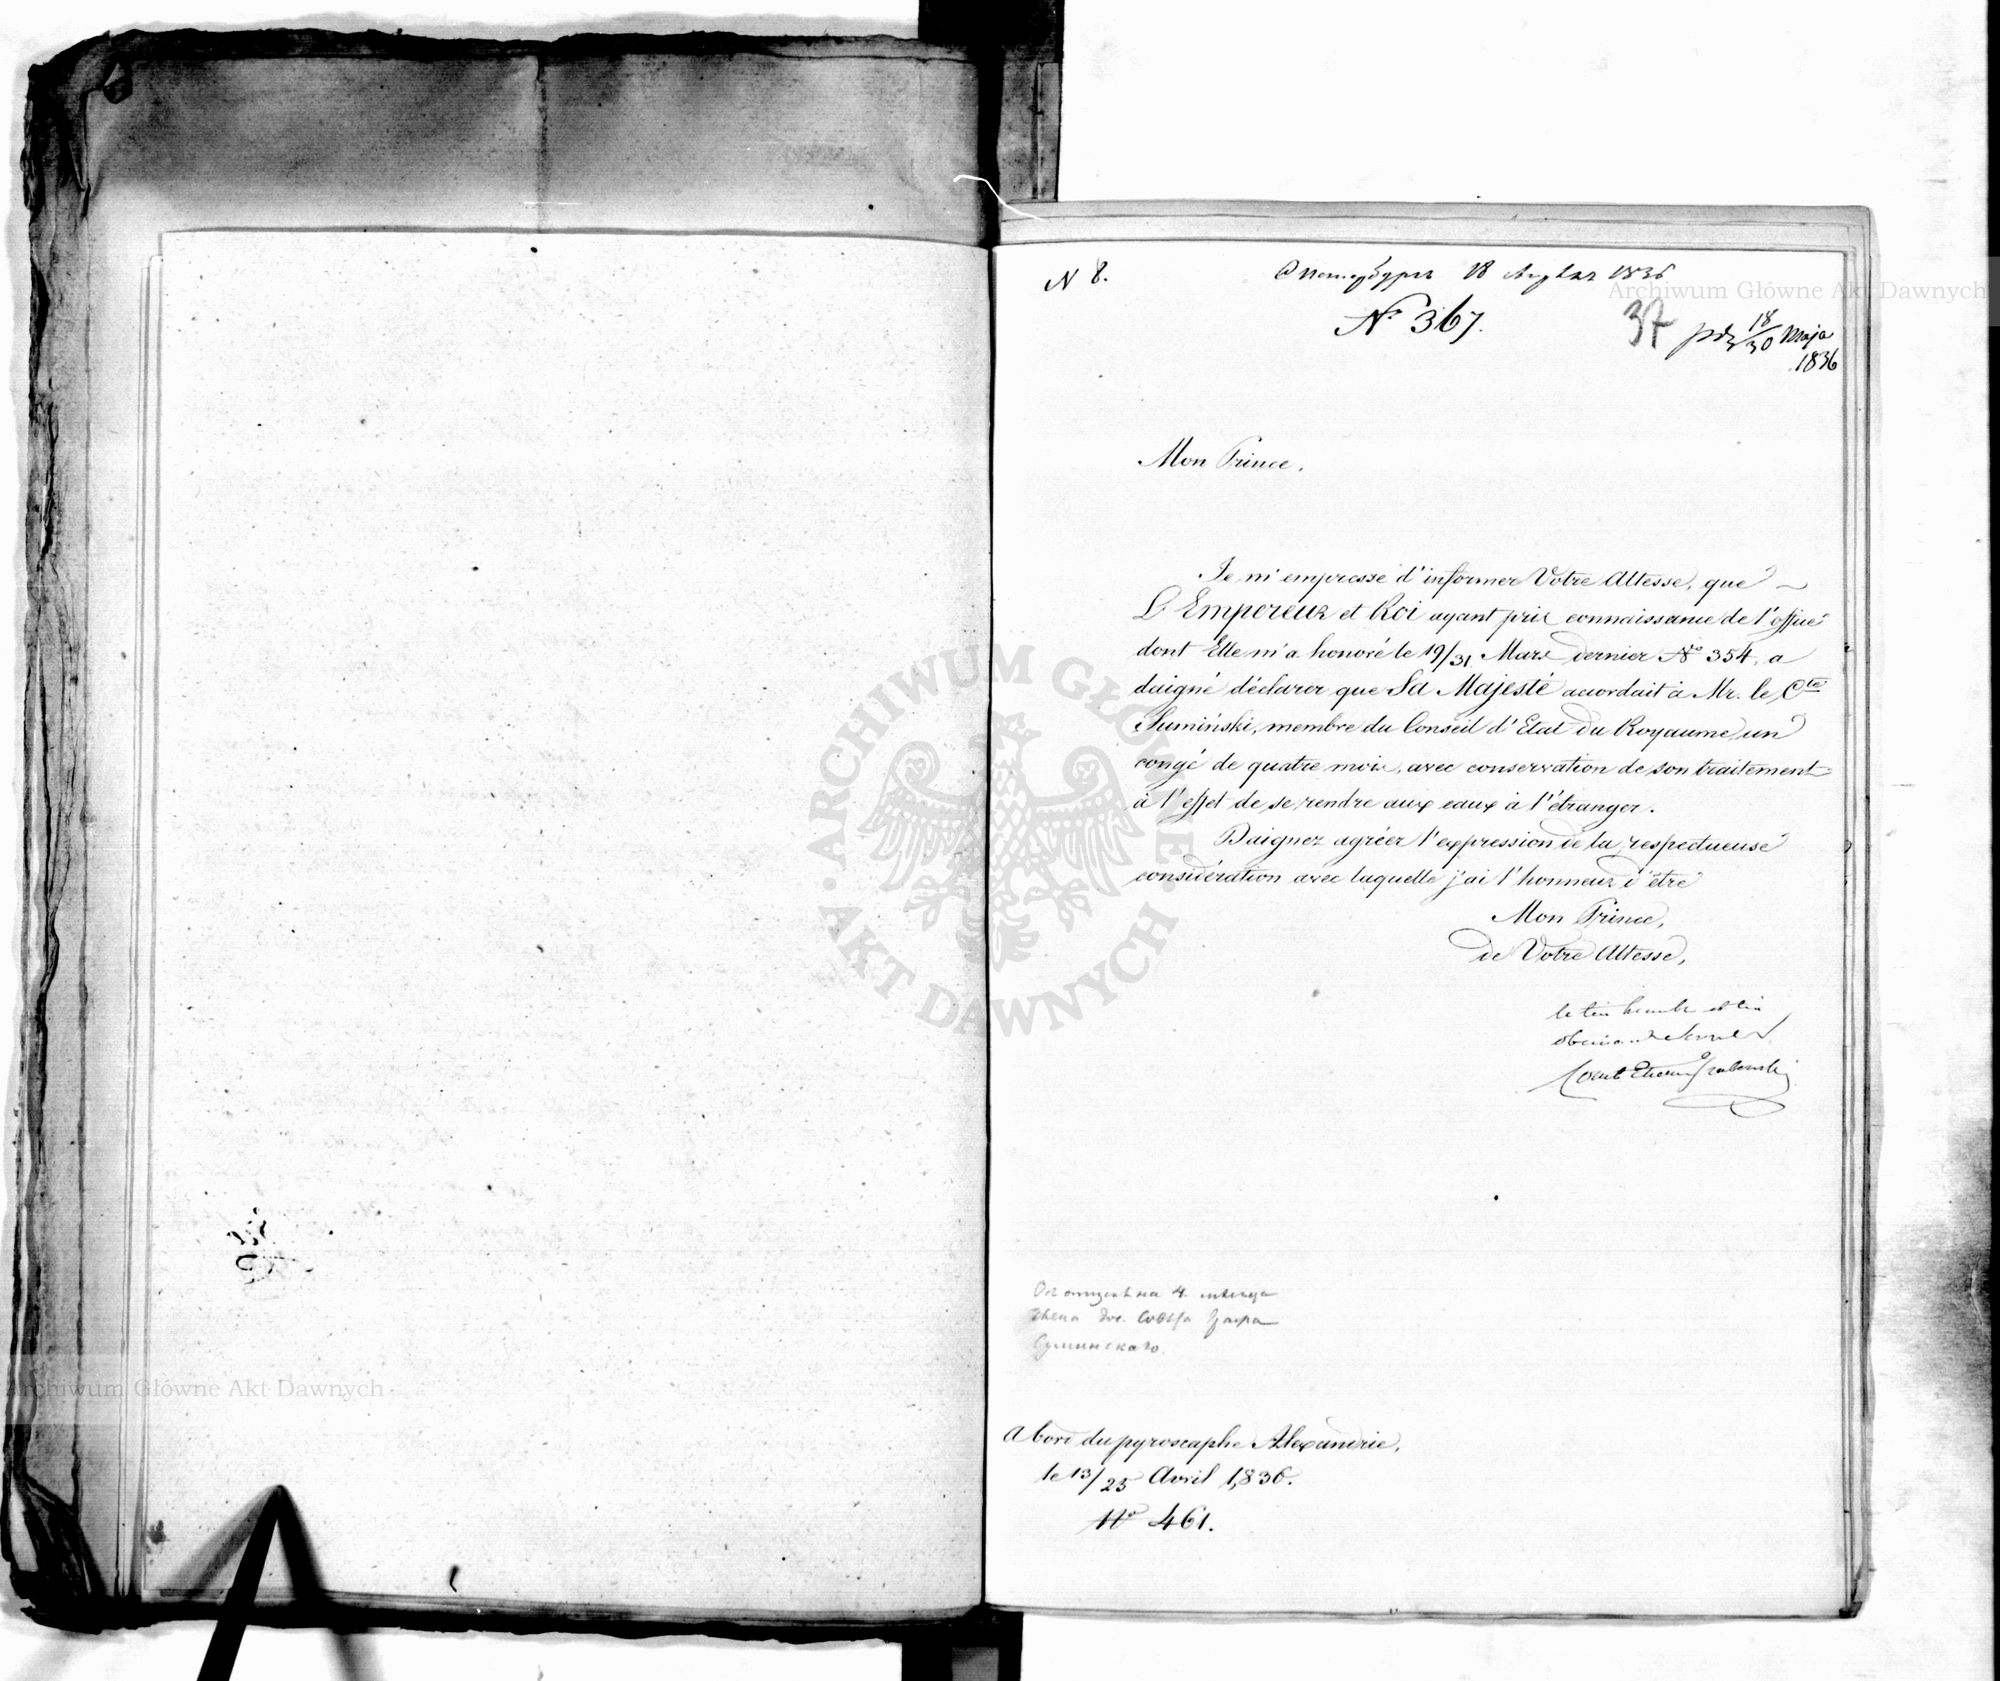 N 8.
18 1836
Archiwum Główne Akt Dawnych
№ 367.
37
18/30 Maja
1836
Mon Prince,
Je m'empresse d'informer Votre Altesse, que
L'Empereur et Roi ayant pris connaissance de l'office
dont Elle m'a honoré le 19/31 Mars dernier № 354, a
daigné déclarer que Sa Majesté accordait à Mr. le Cte
Sumiński, membre du Conseil d'Etat du Royaume, un
congé de quatre mois, avec conservation de son traitement
à l'effet de se rendre aux eaux à l'étranger.
Daignez agréer l'expression de la respectueuse
considération avec laquelle j'ai l'honneur d'être
Mon Prince,
de Votre Altesse,
le très humble et très
obéissant Serviteur
Comte Etienne Grabowski
ARCHIWUM GŁÓWNE AKT DAWNYCH
на 4. месяца
члена Гос. Совета Графа
Суминскаго.
Archiwum Główne Akt Dawnych
A bord du pyroscaphe Alexandrie,
le 13/25 Avril 1,836.
№ 461.